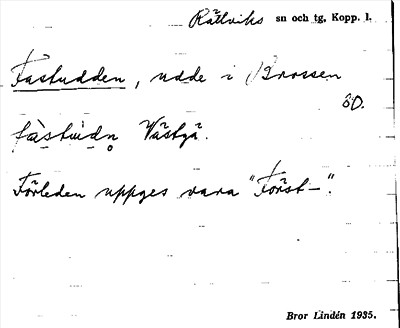 Rättviks sn och tg, Kopp. l.
Fastudden, udde i Brossen
SO.
fàstùdn̥ Västgä.
Förleden uppges vara "Först-".
Bror Lindén 1935.